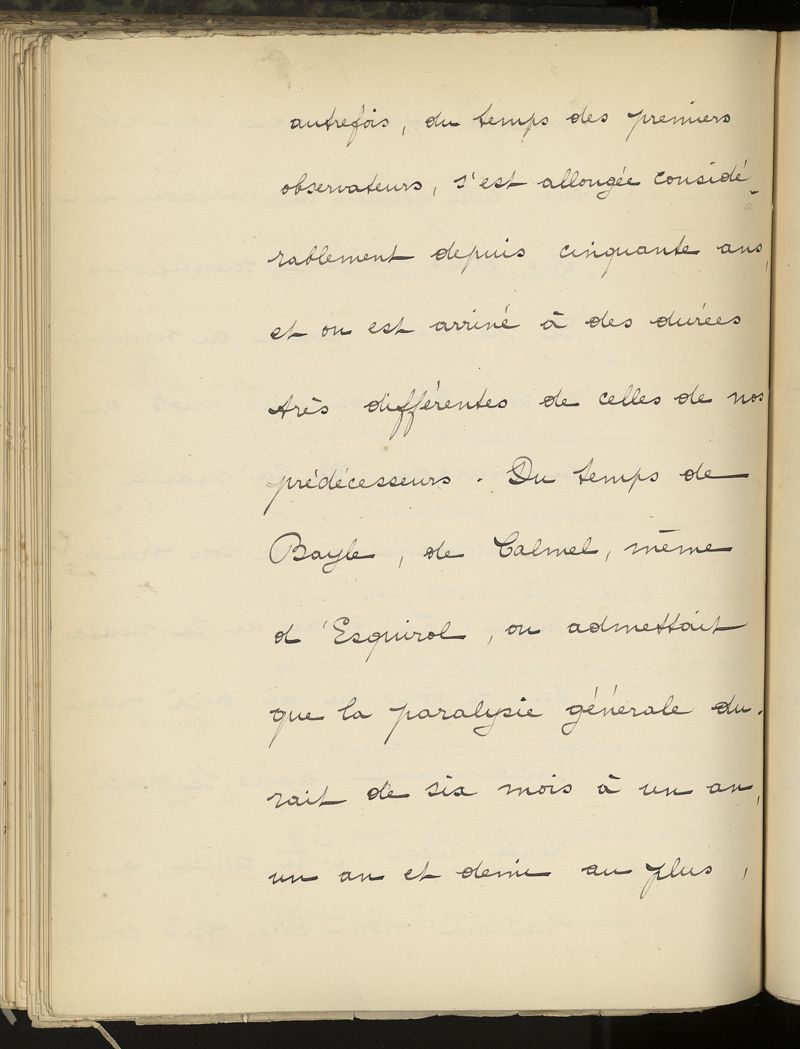 autrefois, du temps des premiers
observateurs, s'est allongée considé-
rablement depuis cinquante ans,
et on est arrivé à des durées
très différentes de celles de nos
prédécesseurs. Du temps de
Bayle, de Calmel, même
d'Esquirol, on admettait
que la paralysie générale du-
rait de six mois à un an,
un an et demi au plus,